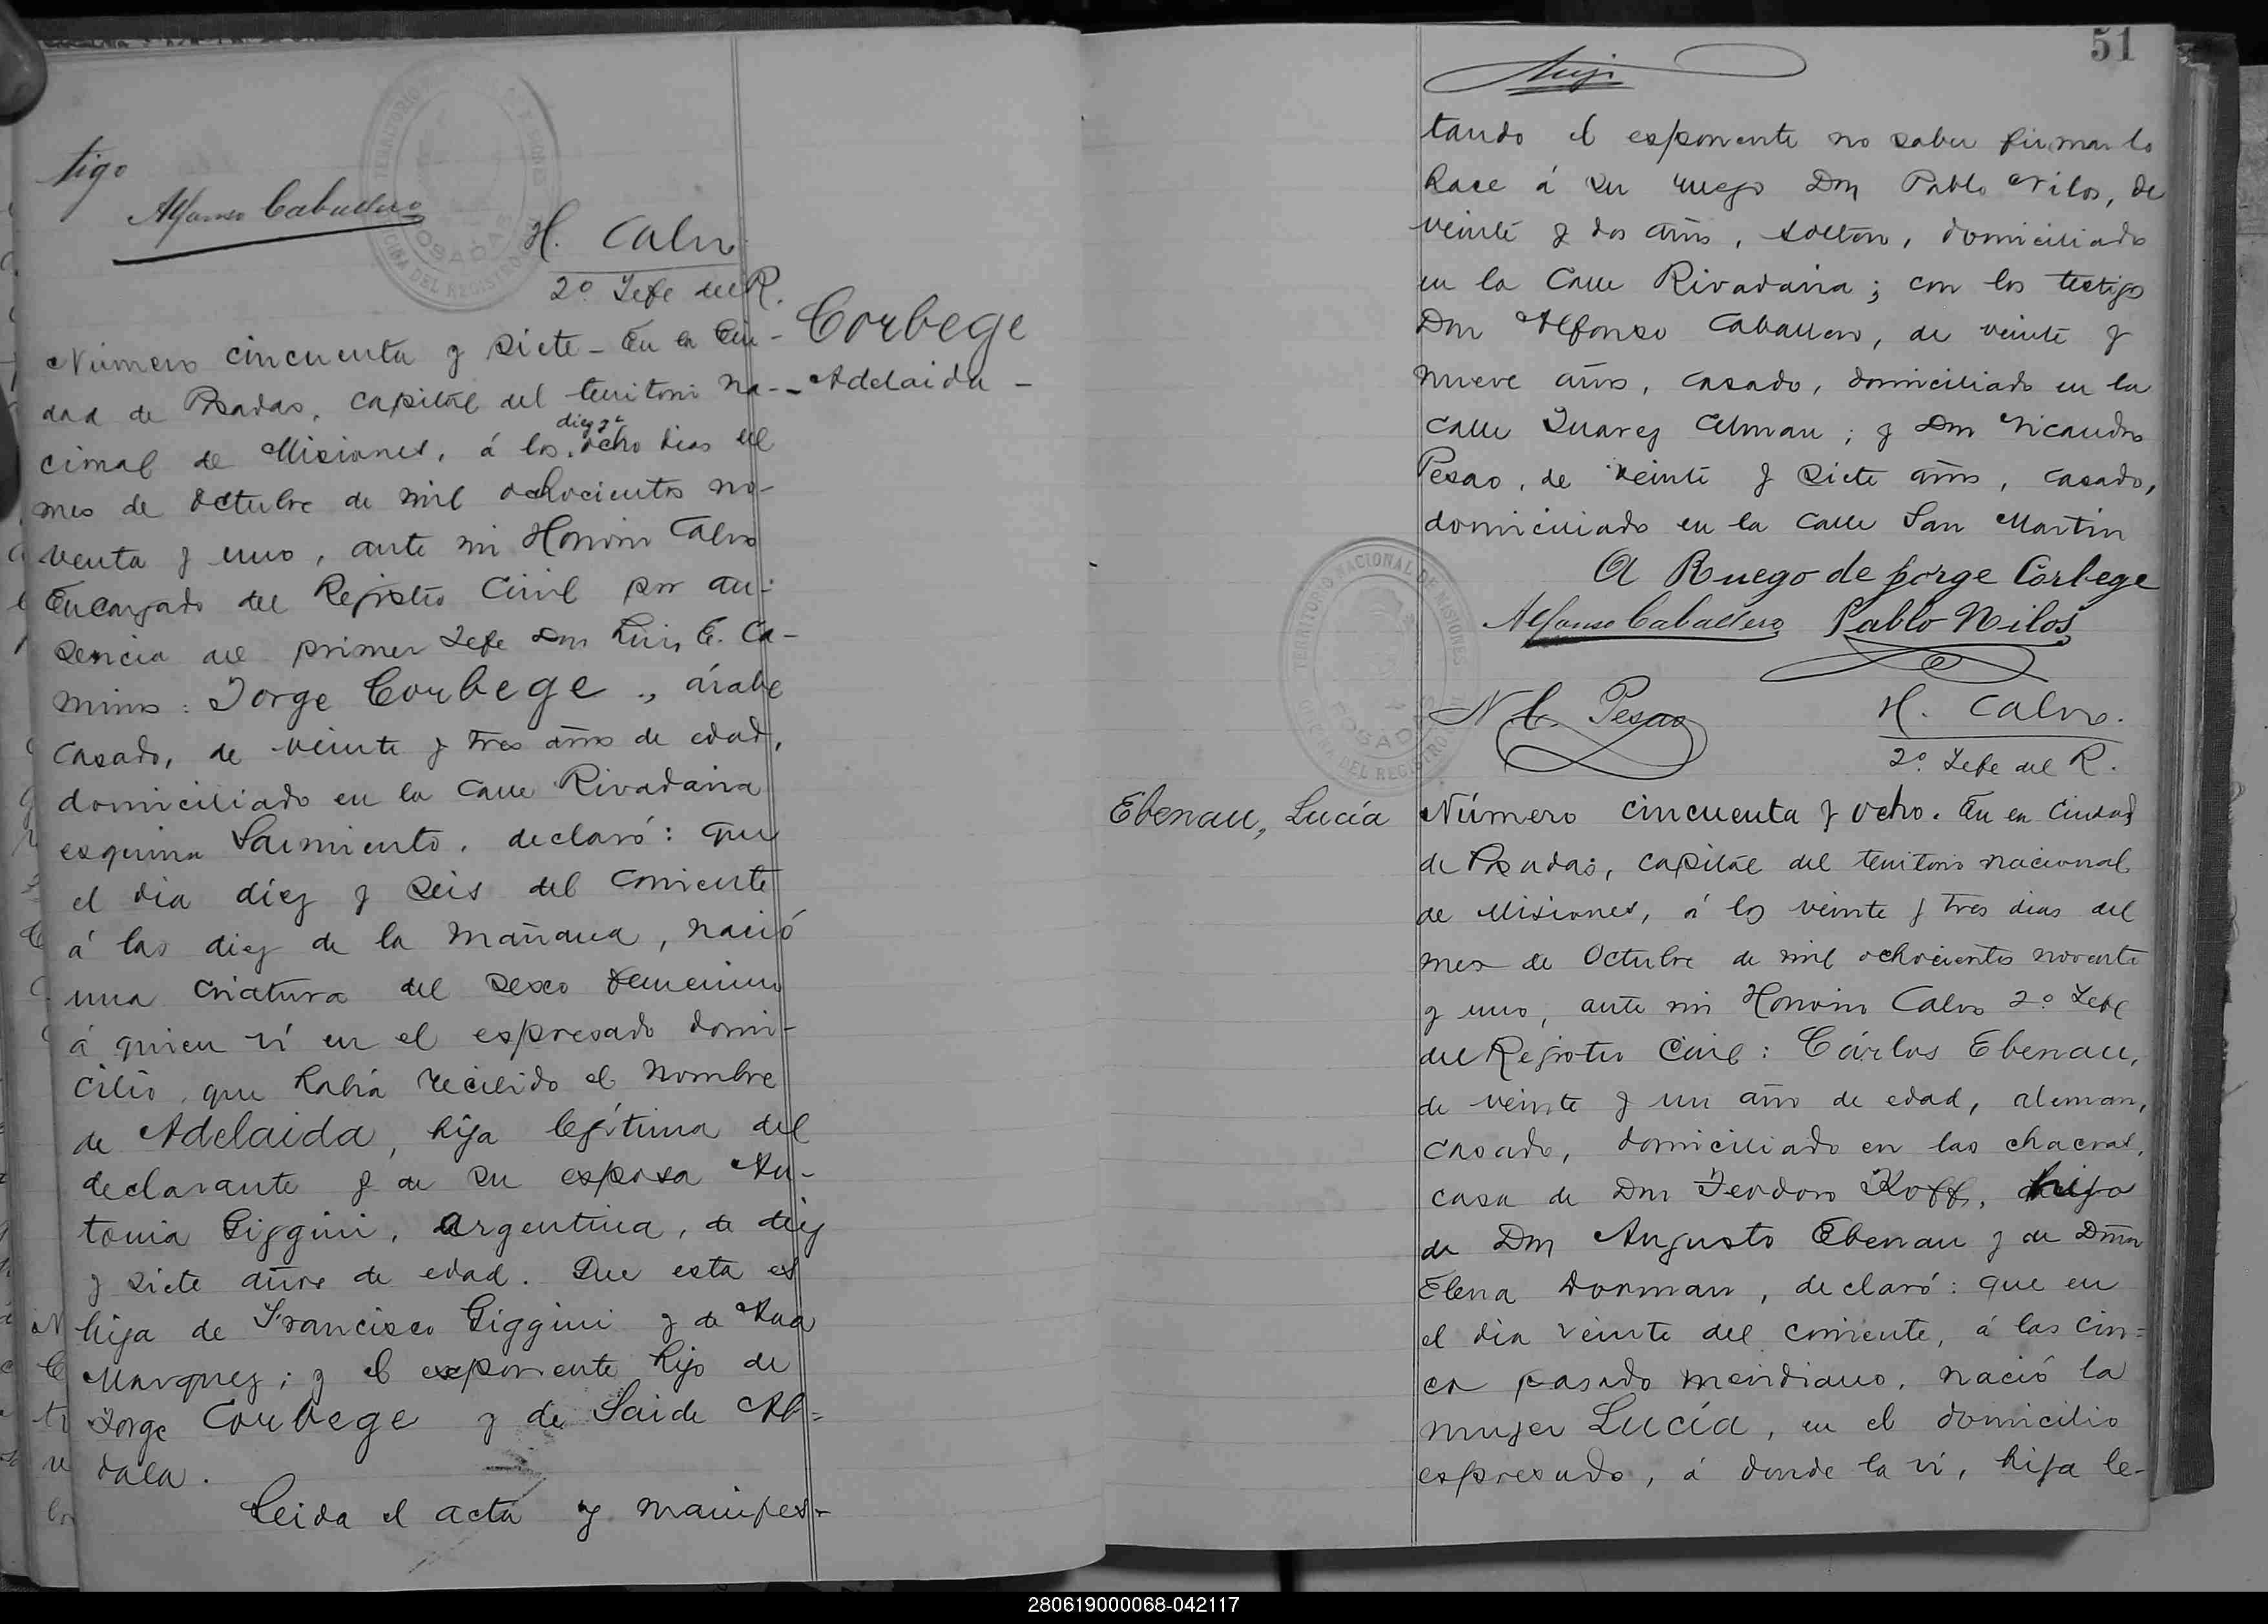 tigo
Alfonso Caballero
H. Calvo
2º Jefe del R.
Corbege
Adelaida -
Número cincuenta y siete - En la Ciu-
dad de Posadas, capital del territorio na-
cional de Misiones, á los diez y ocho dias del
mes de Octubre de mil ochocientos no-
venta y uno, ante mi Honorio Calvo
Encargado del Registro Civil por au-
sencia del primer Jefe Don Luis E. Ca-
minos: Jorge Corbege, árabe
casado, de veinte y tres años de edad,
domiciliado en la calle Rivadavia
esquina Sarmiento, declaró: que
el dia diez y seis del corriente
á las diez de la mañana, nació
una criatura del sexo femenino
á quien ví en el espresado domi-
cilio, que habia recibido el nombre
de Adelaida, hija legítima del
declarante y de su esposa An-
tonia Giggini, argentina, de diez
y siete años de edad. Que esta es
hija de Francisco Giggini y de Ana
Marquez; y el exponente hijo de
Jorge Corbege y de Saide Ab=
dala.
Leida el acta y manifes=
51
tando el esponente no saber firmar lo
hace á su ruego Don Pablo Nilos, de
veinte y dos años, soltero, domiciliado
en la Calle Rivadavia; con los testigos
Don Alfonso Caballero, de veinte y
nueve años, casado, domiciliado en la
calle Juarez Celman; y Don Nicandro
Pesao, de veinte y siete años, casado,
domiciliado en la calle San Martin
A Ruego de Jorge Corbege
Alfonso Caballero Pablo Nilos
N. C. Pesao
H. Calvo.
2º Jefe del R.
TERRITORIO NACIONAL DE MISIONES
OFICINA DEL REGISTRO
POSADAS
Ebenau, Lucía
Número cincuenta y ocho. En la Ciudad
de Posadas, capital del territorio nacional
de Misiones, á los veinte y tres dias del
mes de Octubre de mil ochocientos noventa
y uno, ante mi Honorio Calvo 2º Jefe
del Registro Civil: Cárlos Ebenau,
de veinte y un año de edad, aleman,
casado, domiciliado en las chacras,
casa de Don Teodoro Koff, hijo
de Don Augusto Ebenau y de Dña
Elena Dorman, declaró: que en
el dia veinte del corriente, á las cin=
co pasado meridiano, nació la
mujer Lucía, en el domicilio
espresado, á donde la ví, hija le-
280619000068-042117